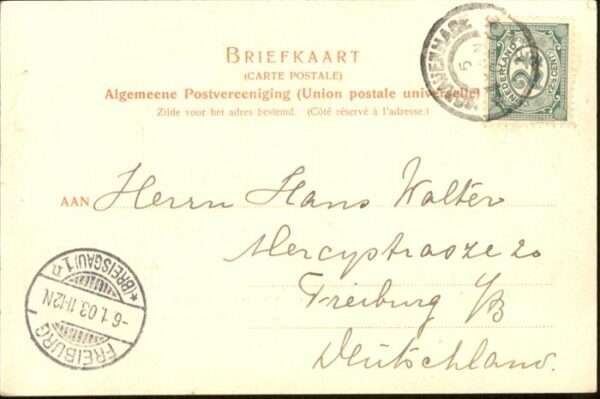 BRIEFKAART
(CARTE POSTALE)
Algemeene Postvereeniging (Union postale universelle)
Zijde voor het adres bestemd. (Côté réservé à l'adresse.)
NEDERLAND
2½
CENT
5
AAN Herrn Hans Walter
Mercystrasze 20
Freiburg i/B
Deutschland.
*(BREISGAU) 1 n
-6.1.03. 11-12N.
FREIBURG